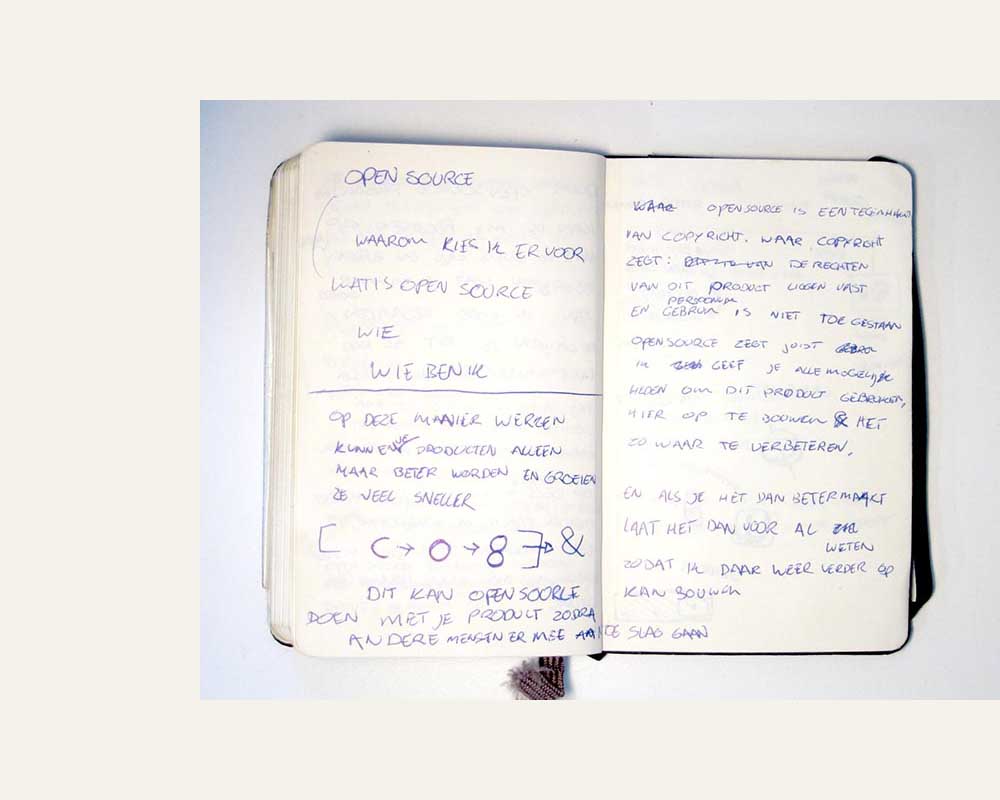 OPEN SOURCE
WAAROM KIES IK ER VOOR
WAT IS OPEN SOURCE
WIE
WIE BEN IK
OP DEZE MANIER WERKEN
KUNNEN WE PRODUCTEN ALLEEN
MAAR BETER WORDEN EN GROEIEN
ZE VEEL SNELLER
[ C → O → 8 ] → &
DIT KAN OPENSOURCE
DOEN MET JE PRODUCT ZODRA
ANDERE MENSEN ER MEE AAN TE SLAG GAAN
WAAR OPENSOURCE IS EEN TEGENHANGER
VAN COPYRIGHT. WAAR COPYRIGHT
ZEGT: DE RECHTEN
VAN DIT PRODUCT LIGGEN VAST
PERSOONLIJK
EN GEBRUIK IS NIET TOEGESTAAN
OPENSOURCE ZEGT JUIST
IK GEEF JE ALLE MOGELIJK
HEDEN OM DIT PRODUCT GEBRUIKEN,
HIER OP TE BOUWEN & HET
ZO WAAR TE VERBETEREN.
EN ALS JE HET DAN BETER MAAKT
LAAT HET DAN VOOR AL
WETEN
ZODAT IK DAAR WEER VERDER OP
KAN BOUWEN